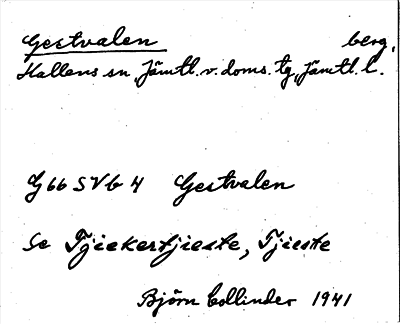 Gestvalen berg,
Hallens sn, Jämtl. v. doms. tg, Jämtl. l.
G 66 SV b 4 Gestvalen
Se Tjiekertjieste, Tjieste
Björn Collinder 1941